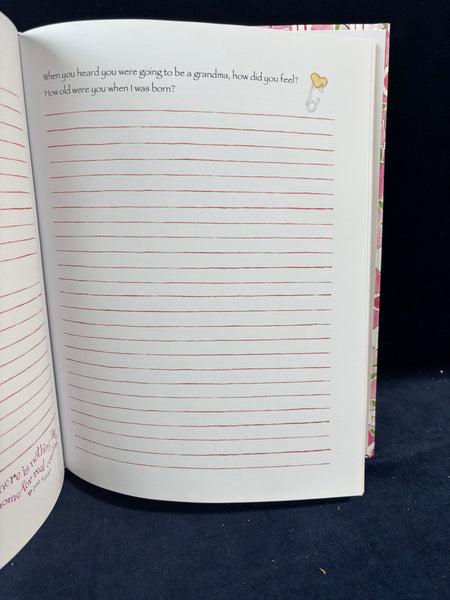 When you heard you were going to be a grandma, how did you feel?
How old were you when I was born?
here is nothing
home for real